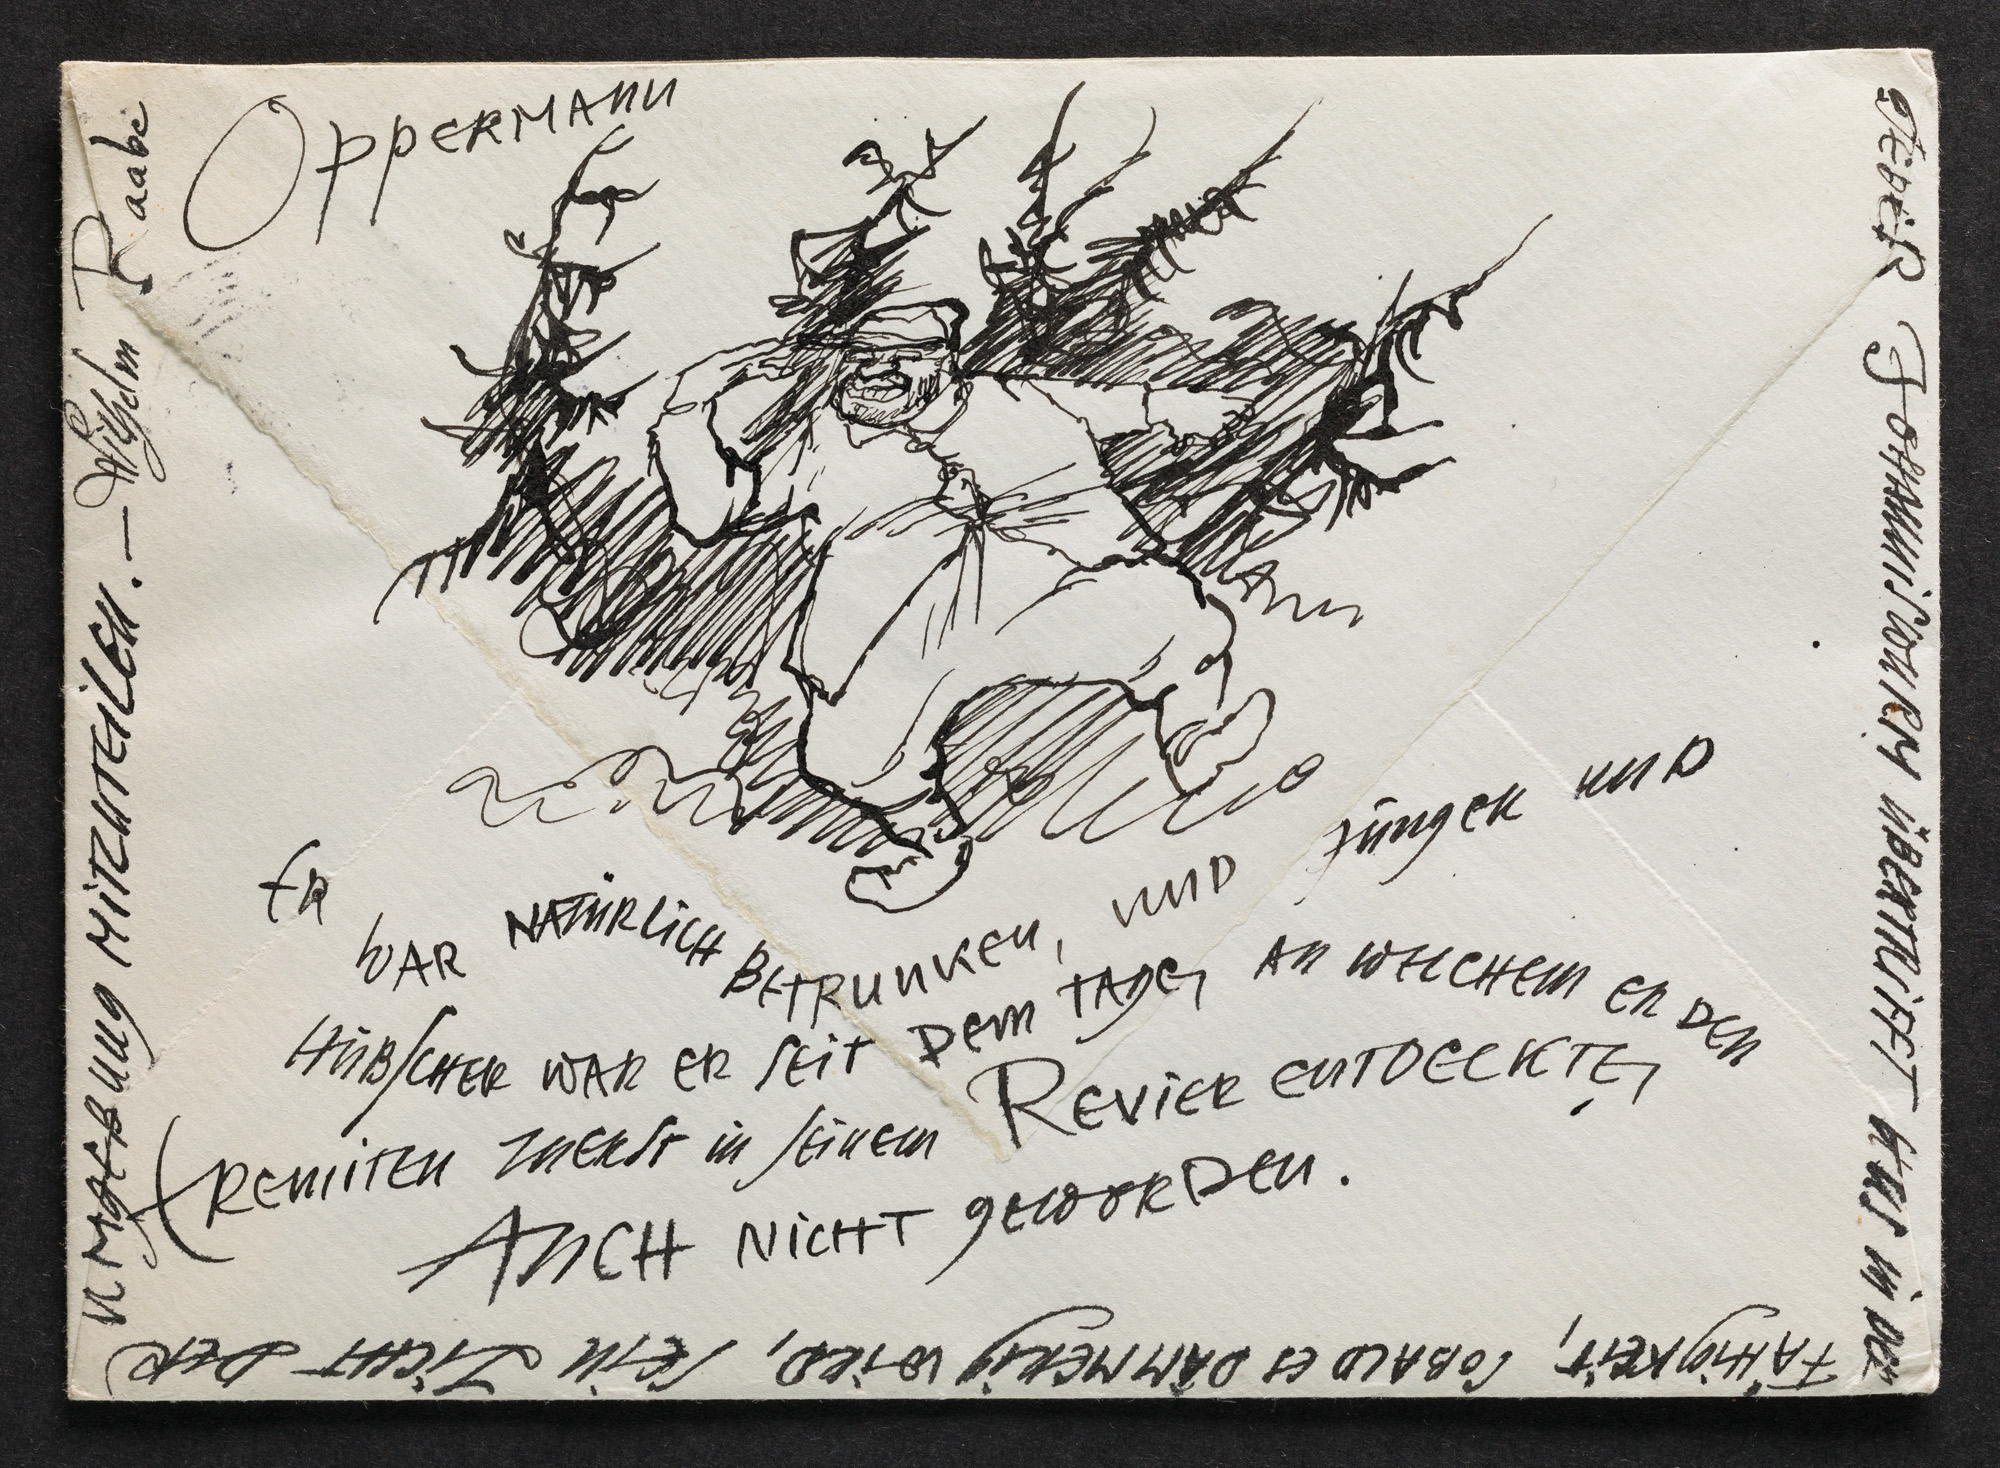 Oppermann
Er
war natürlich betrunken, und jünger und
hübscher war er seit dem Tage, an welchem er den
Eremiten zuerst in seinem Revier entdeckte,
auch nicht geworden.
Jeder Johanniswurm übertrifft uns in der
Fähigkeit, sobald es dämmerig wird, sein Licht der
Umgebung mitzuteilen. — Wilhelm Raabe